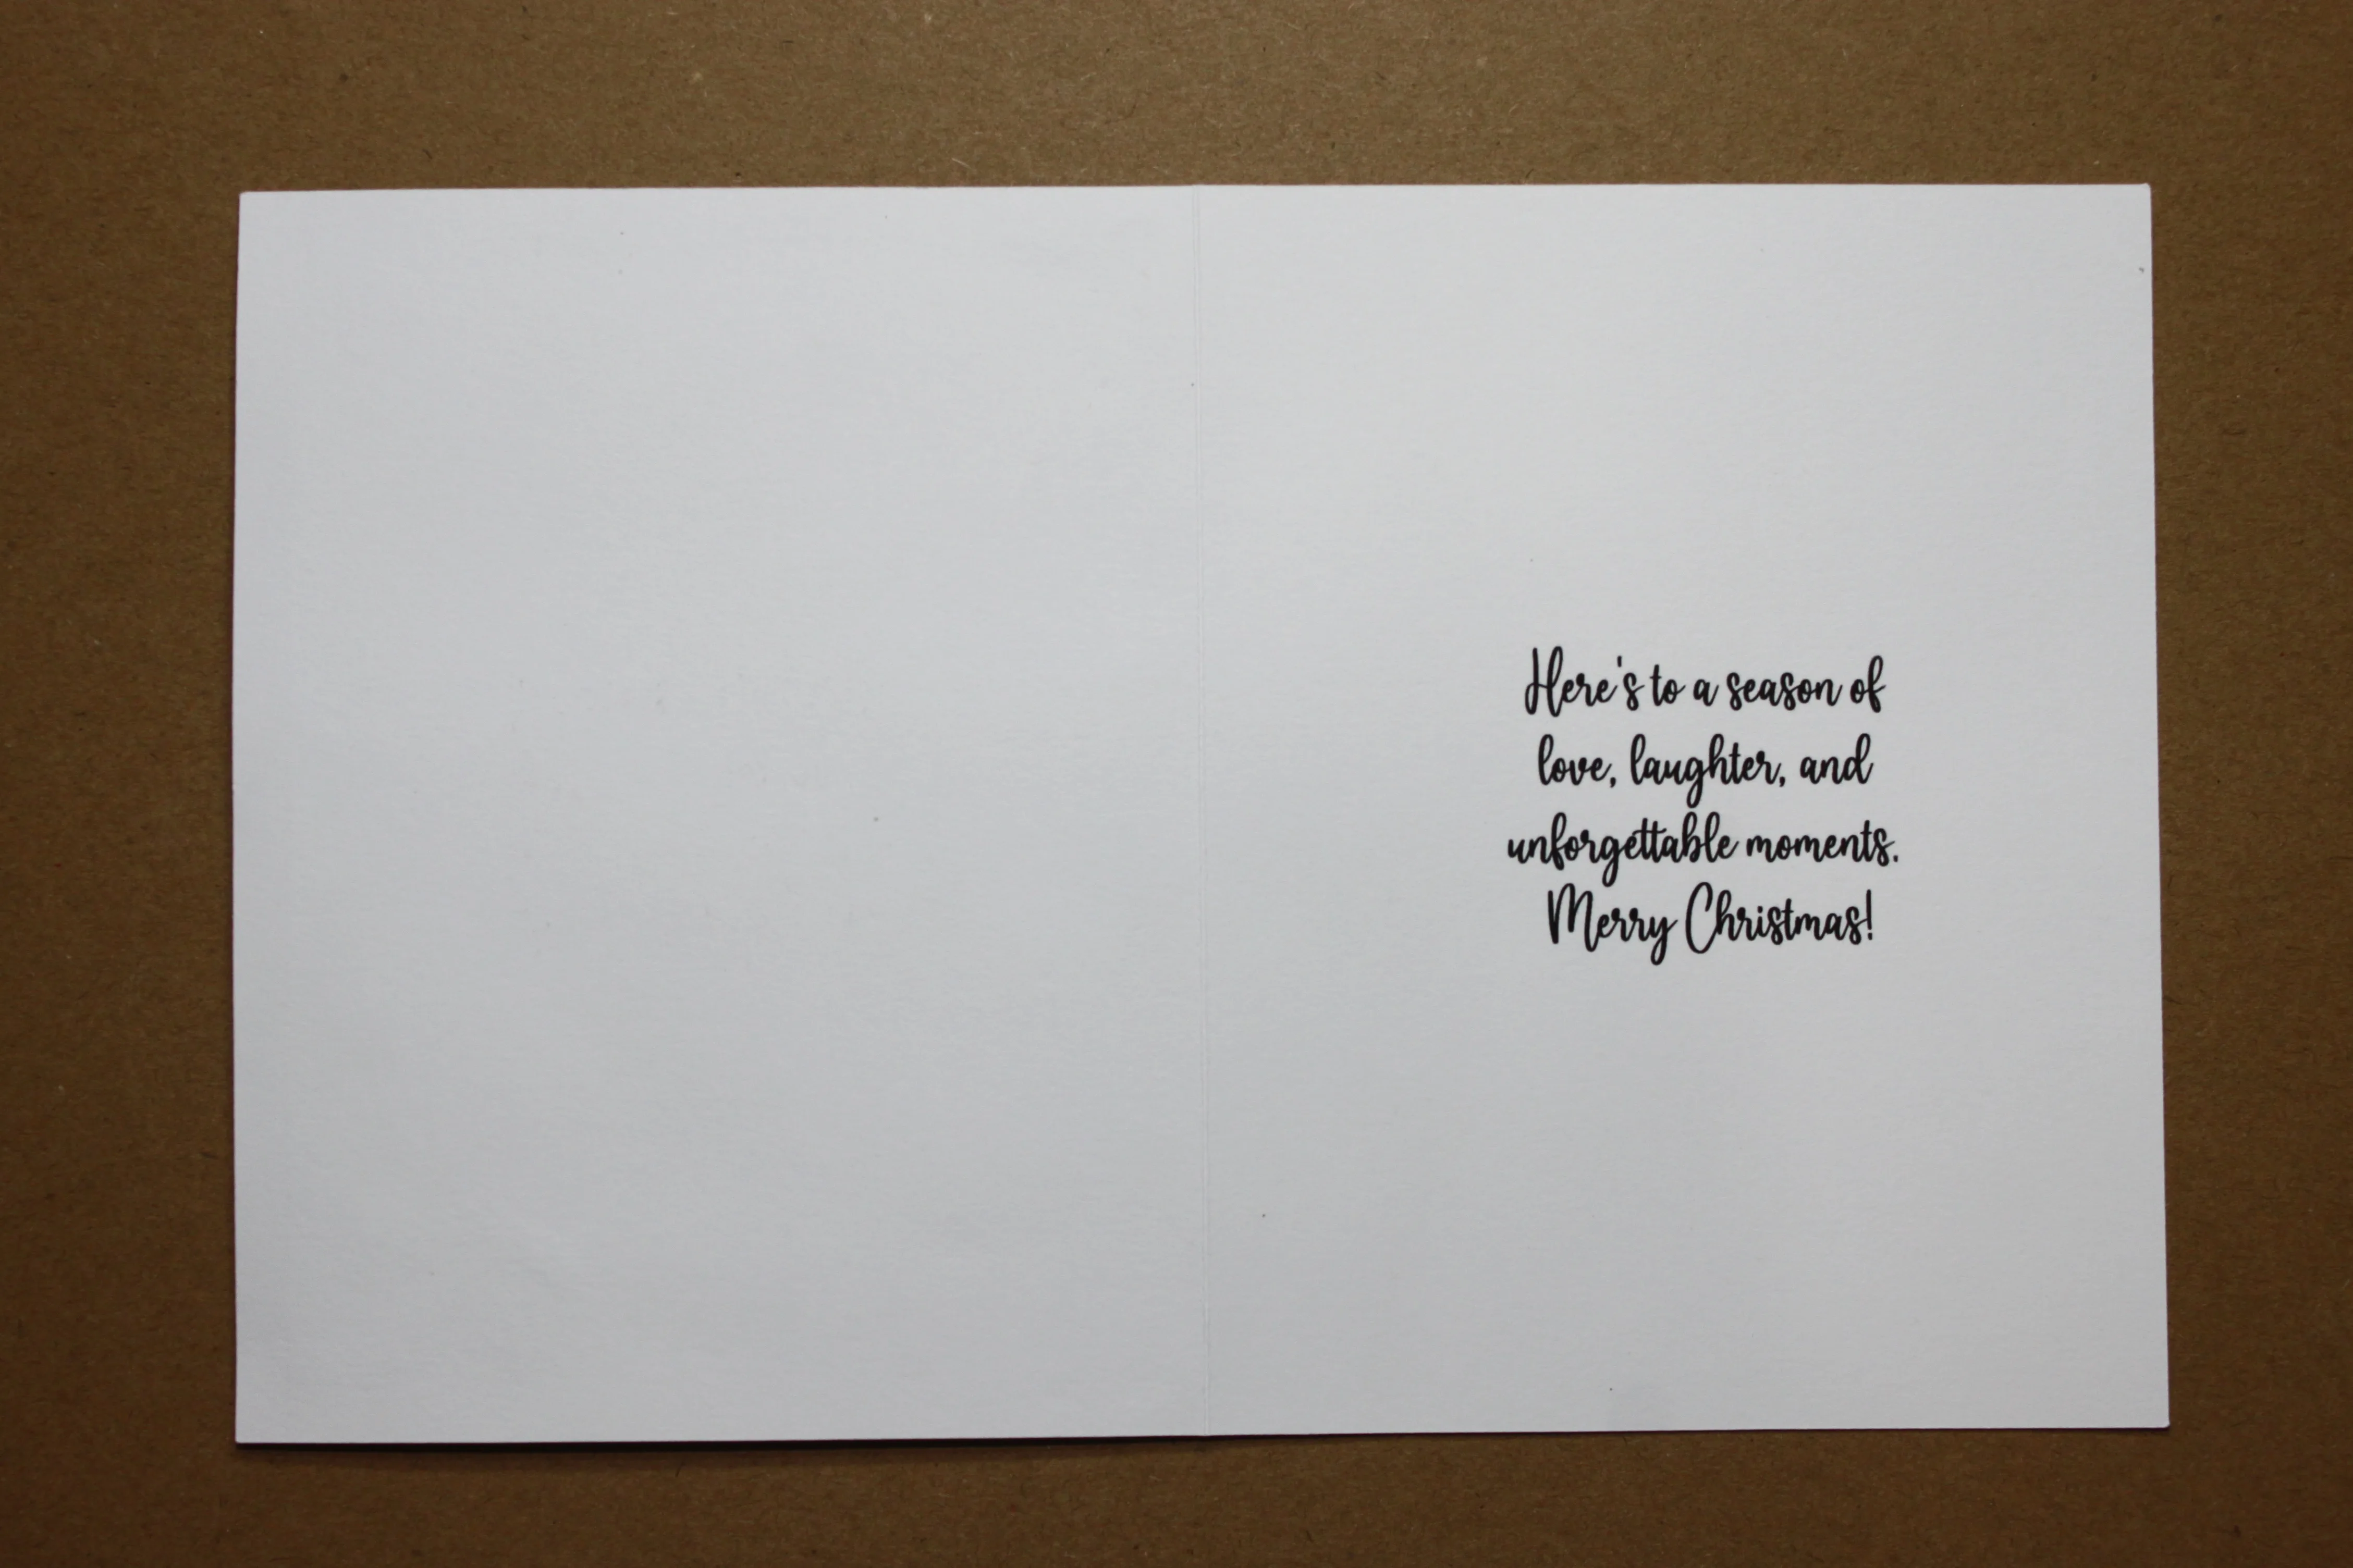 Here's to a season of
love, laughter, and
unforgettable moments.
Merry Christmas!